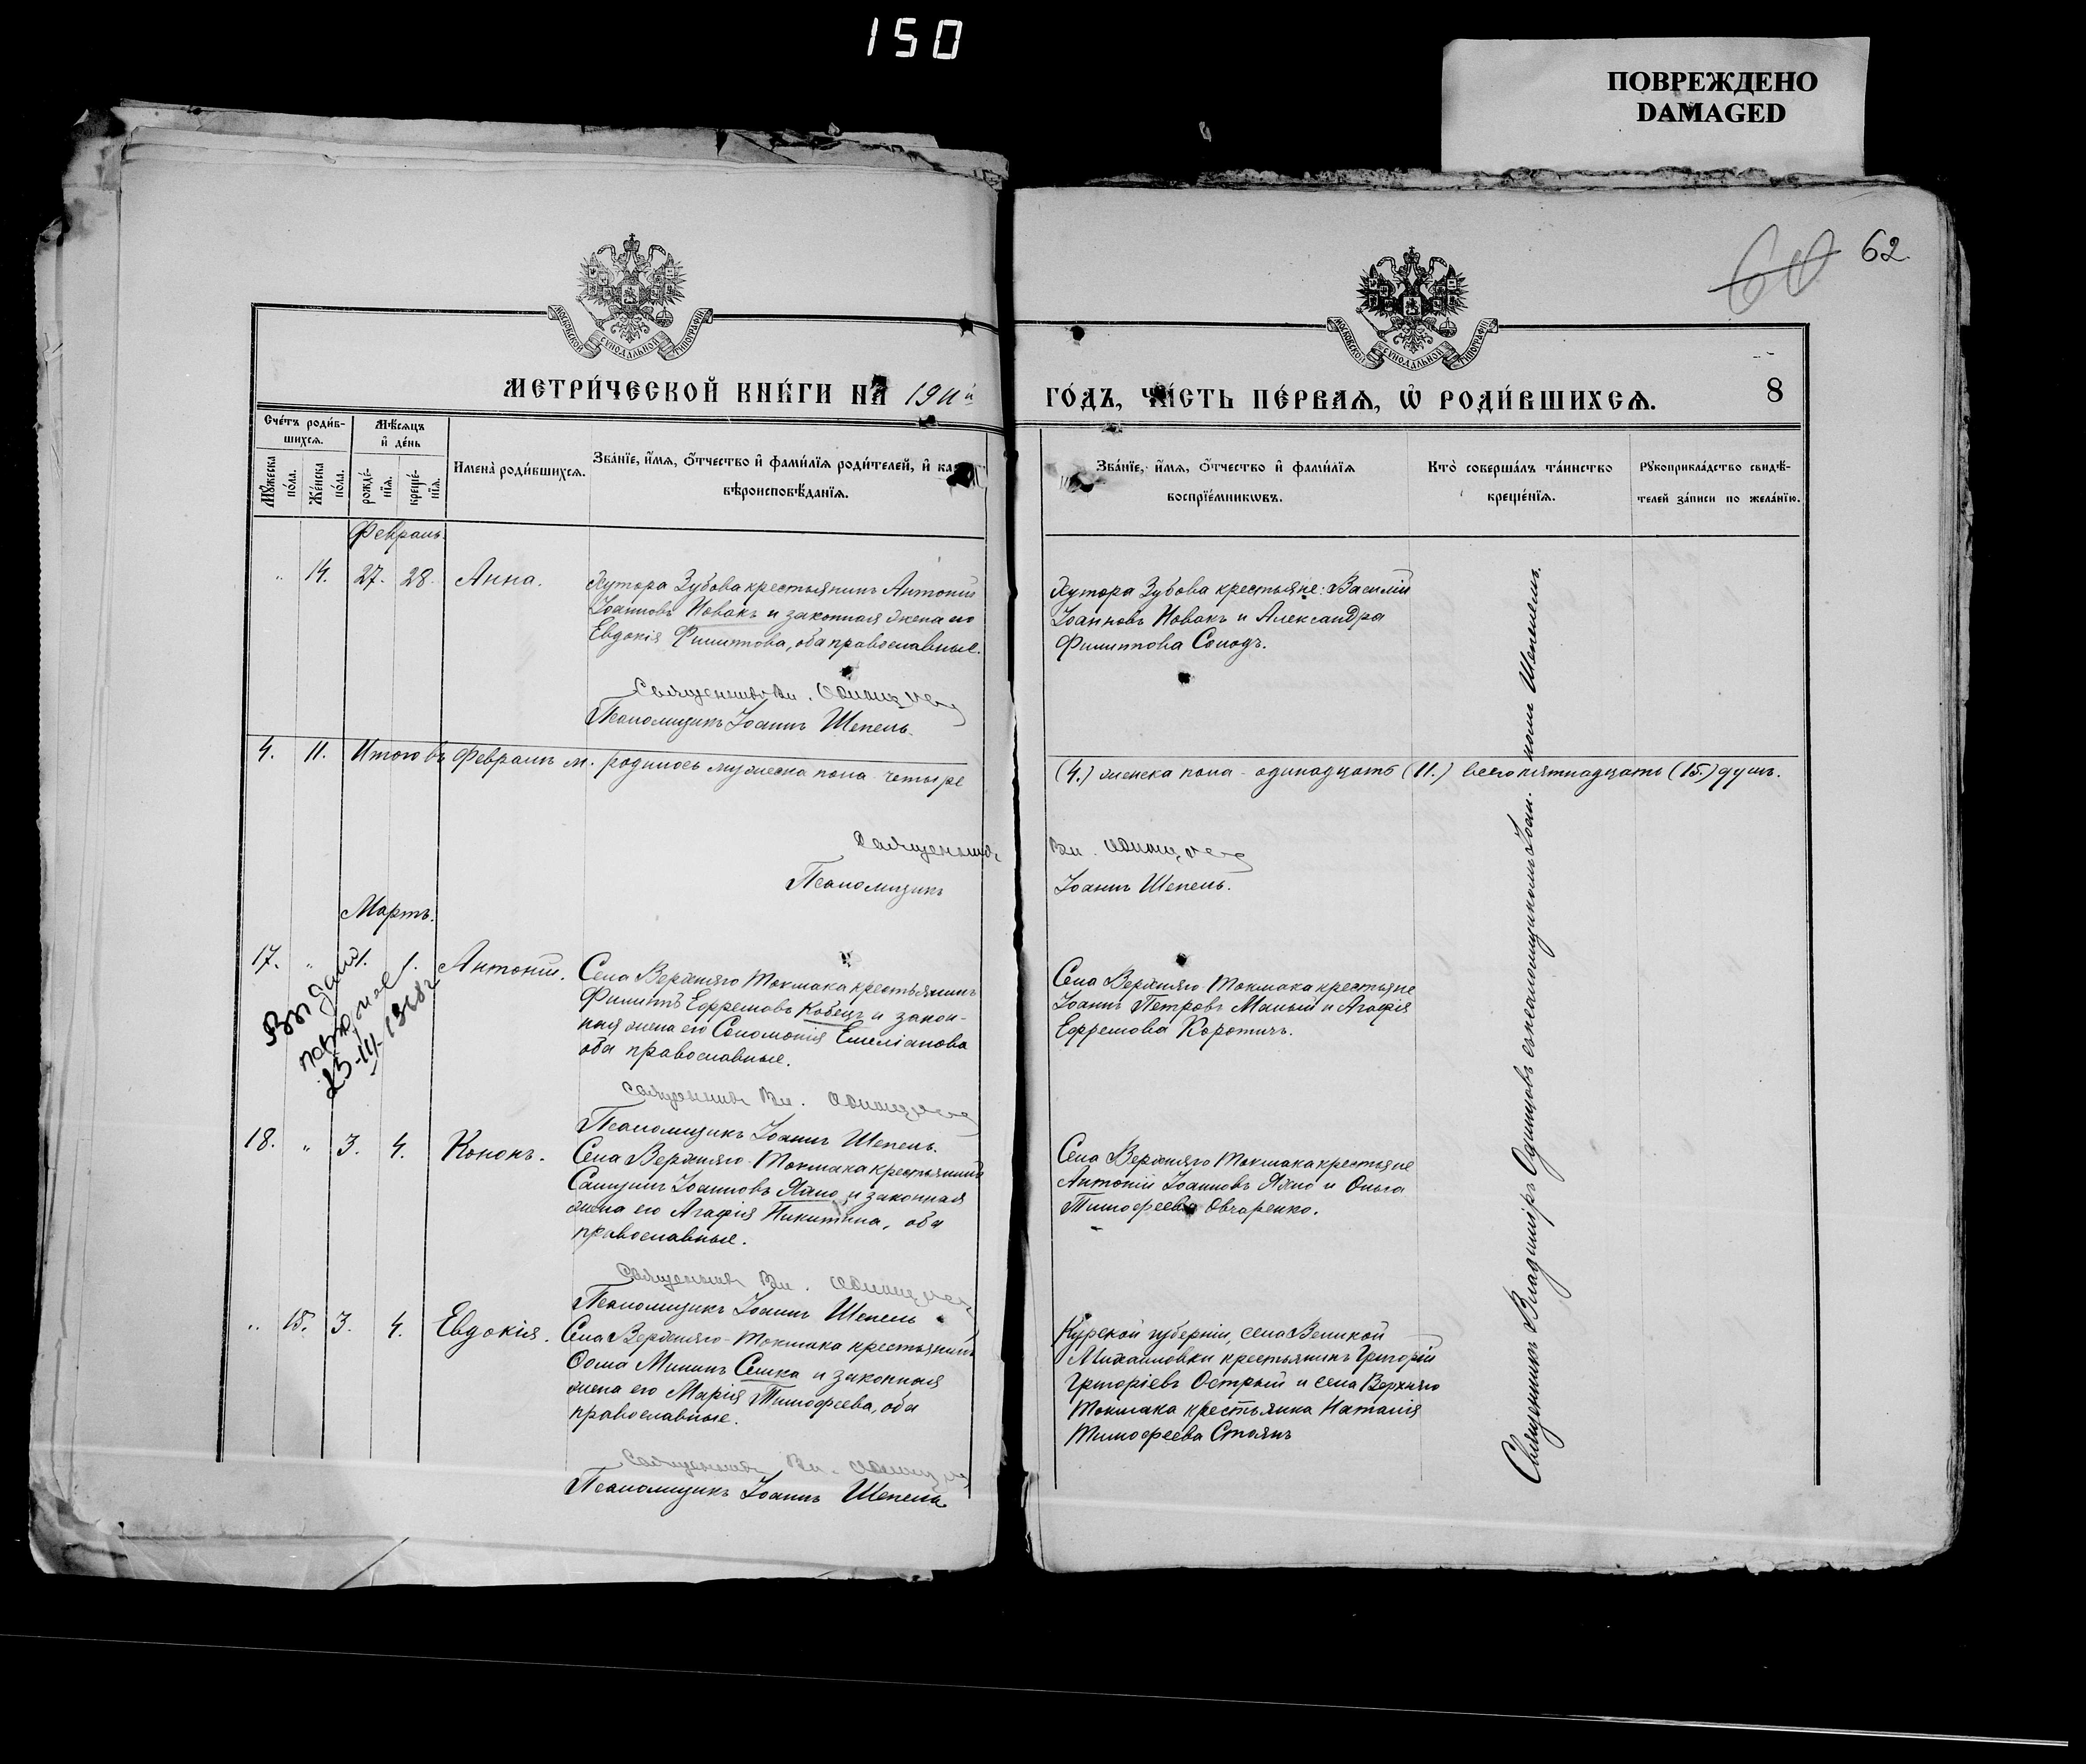 150
ПОВРЕЖДЕНО
DAMAGED
62.
60
МОСКОВСКОЙ СѴНОДАЛЬНОЙ ТИПОГРАФІИ
МОСКОВСКОЙ СѴНОДАЛЬНОЙ ТИПОГРАФІИ
МЕТРИ́ЧЕСКОЙ КНИ́ГИ НА
ГО́ДЪ, ЧА́СТЬ ПЕ́РВАЯ, Ѡ҆ РОДИ́ВШИХСЯ.
8
Сче́тъ роди́в-
шихся.
Мѣ́сяцъ
и҆ де́нь
Мꙋ́жеска
по́ла.
Же́нска
по́ла.
рожде́-
нїя.
креще́-
нїя.
И҆мена̀ роди́вшихся.
Зва́нїе, и҆́мя, ѻ҆́тчество и҆ фами́лїя роди́телей, и҆ ка
вѣроисповѣ́данїя.
Зва́нїе, и҆́мя, ѻ҆́тчество и҆ фами́лїя
воспрїе́мникѡвъ.
Кто̀ соверша́лъ та́инство
креще́нїя.
Рꙋкоприкла́дство свидѣ́-
телей за́писи по жела́нїю.
Февраль.
" 14. 27. 28. Анна.
Хутора Зубова крестьянинъ Антоній
Іоанновъ Новакъ и законная жена его
Евдокія Филиппова, оба православные.
Священникъ Вл. Одинцовъ
Псаломщикъ Іоаннъ Шепель.
Хутора Зубова крестьяне: Василій
Іоанновъ Новакъ и Александра
Филиппова Солодъ.
4. 11. Итого въ Февралѣ м. родилось мужеска пола четыре
(4.) женска пола - одинадцать (11.) всего пятнадцать (15.) душъ.
Священникъ Вл. Одинцовъ
Псаломщикъ Іоаннъ Шепель.
Мартъ.
17. " 1. 1. Антоній.
Села Верхняго Токмака крестьянинъ
Филиппъ Ефремовъ Кобецъ и закон-
ная жена его Соломонія Емеліанова
оба православные.
Священникъ Вл. Одинцовъ
Псаломщикъ Іоаннъ Шепель.
Села Верхняго Токмака крестьяне
Іоаннъ Петровъ Малый и Агафія
Ефремова Коротичъ.
23-III-
18. " 3. 4. Кононъ.
Села Верхняго-Токмака крестьянинъ
Іоанновъ Яхно и законная
жена его Агафія Никитина, оба
православные.
Священникъ Вл. Одинцовъ
Псаломщикъ Іоаннъ Шепель
Села Верхняго Токмака крестьяне
Антоній Іоанновъ Яхно и Ольга
Тимофеева Овчаренко.
" 15. 3. 4. Евдокія.
Села Верхняго-Токмака крестьянинъ
Ѳома Мининъ Семка и законная
жена его Марія Тимофеева, оба
православные.
Священникъ Вл. Одинцовъ
Псаломщикъ Іоаннъ Шепель
Курской губерніи, села Великой
Михайловки крестьянинъ Григорій
Григоріевъ Острый и села Верхняго
Токмака крестьянка Наталія
Тимофеева Столяръ
Священникъ Владиміръ Одинцовъ съ псаломщикомъ Іоанномъ Шепелемъ.